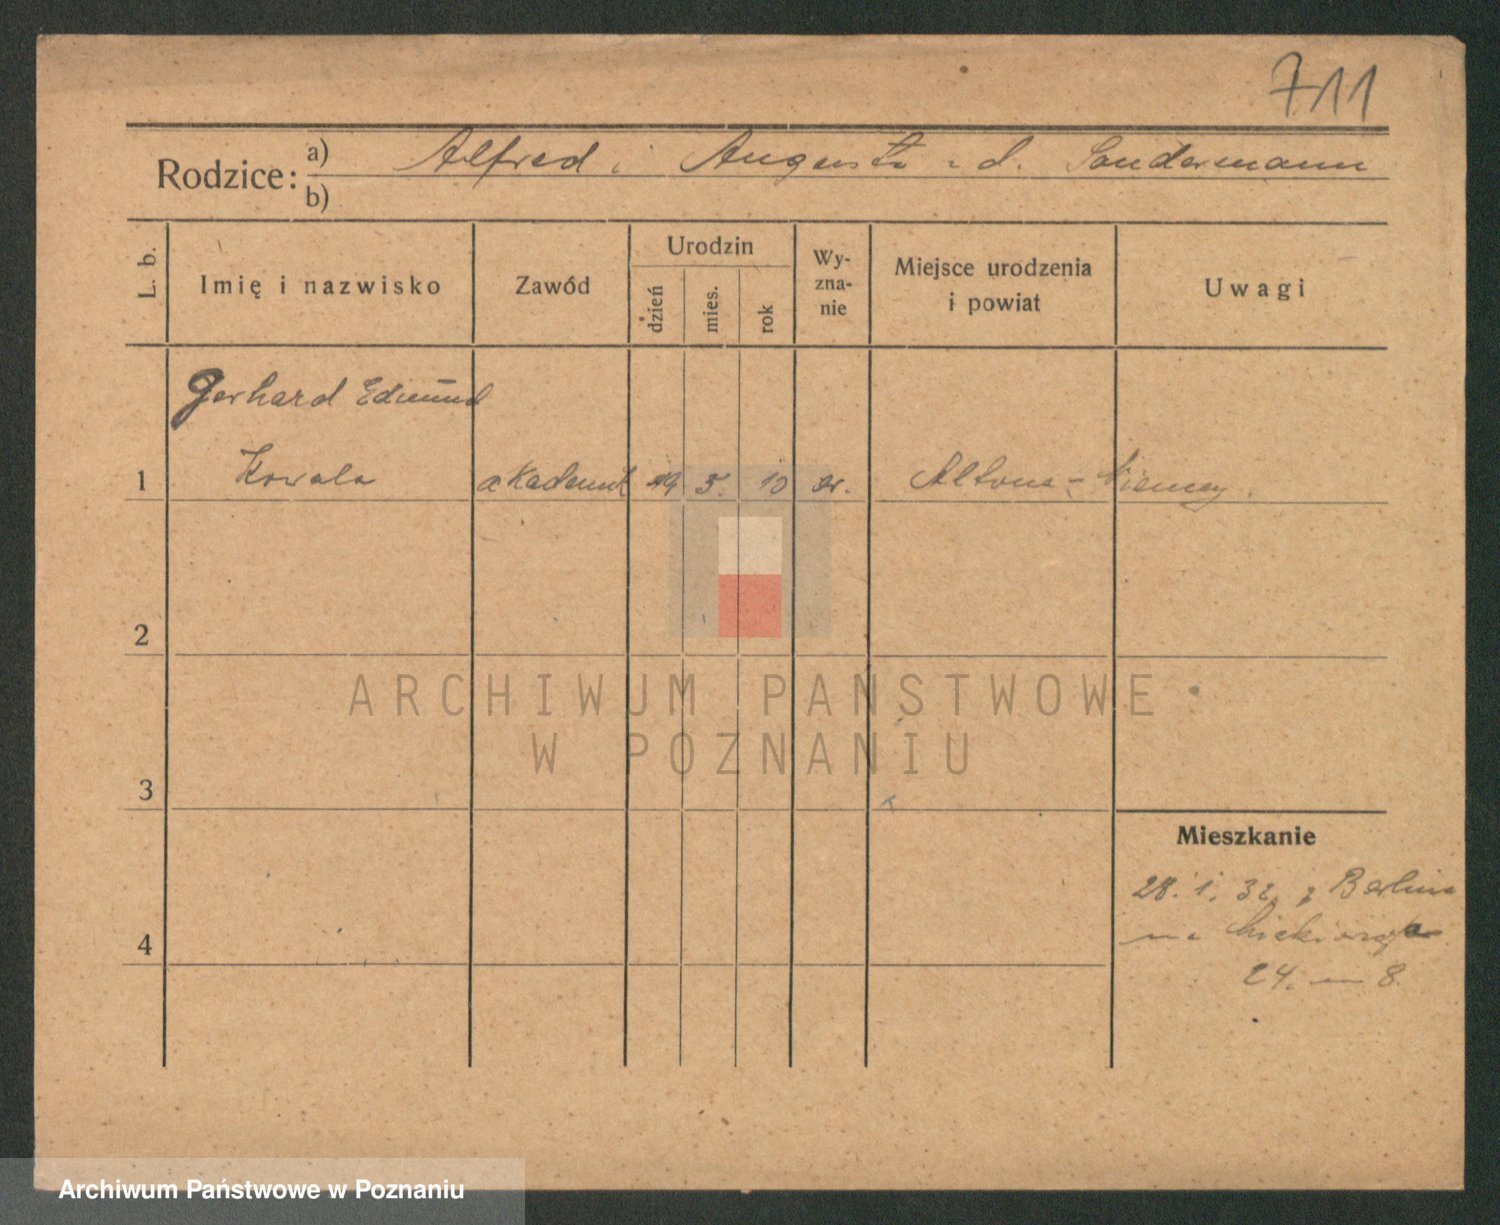 711
Rodzice: a) Alfred i Augusta z d. Sondermann
b)
L. b.
Imię i nazwisko
Zawód
Urodzin
dzień
mies.
rok
Wy-
zna-
nie
Miejsce urodzenia
i powiat
Uwagi
Gerhard Edmund
1 Kowala akademik 19 5. 10 ew. Altona - Niemcy.
2
ARCHIWUM PAŃSTWOWE
W POZNANIU
3
Mieszkanie
28. 1. 32. z Berlina
na
4
24. m 8.
Archiwum Państwowe w Poznaniu